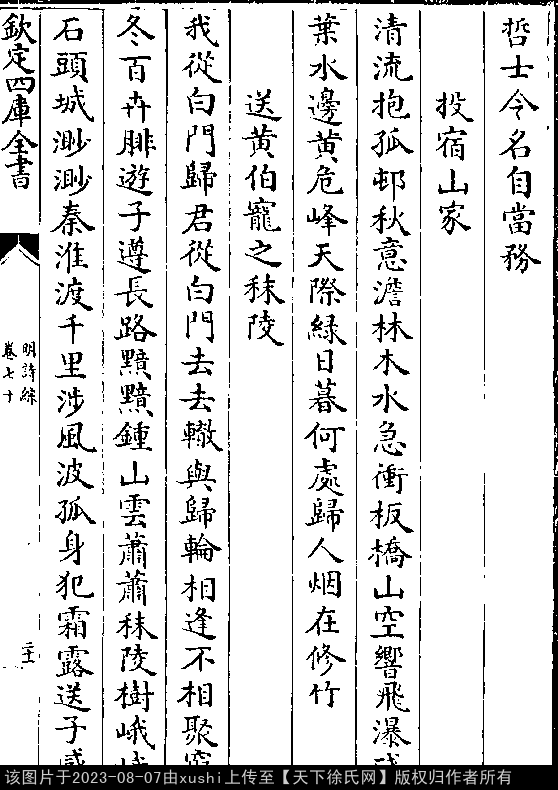 哲士令名自當務
投宿山家
清流抱孤邨秋意澹林木水急衝板橋山空響飛瀑
葉水邊黄危峰天際緑日暮何處歸人烟在修竹
送黄伯寵之秣陵
我從白門歸君從白門去去轍與歸輪相逢不相聚窮
冬百卉腓遊子遵長路黯黯鍾山雲蕭蕭秣陵樹峨
石頭城渺渺秦淮渡千里涉風波孤身犯霜露送子感
欽定四庫全書
明詩綜
卷七十
二十一
该图片于2023-08-07由xushi上传至【天下徐氏网】版权归作者所有